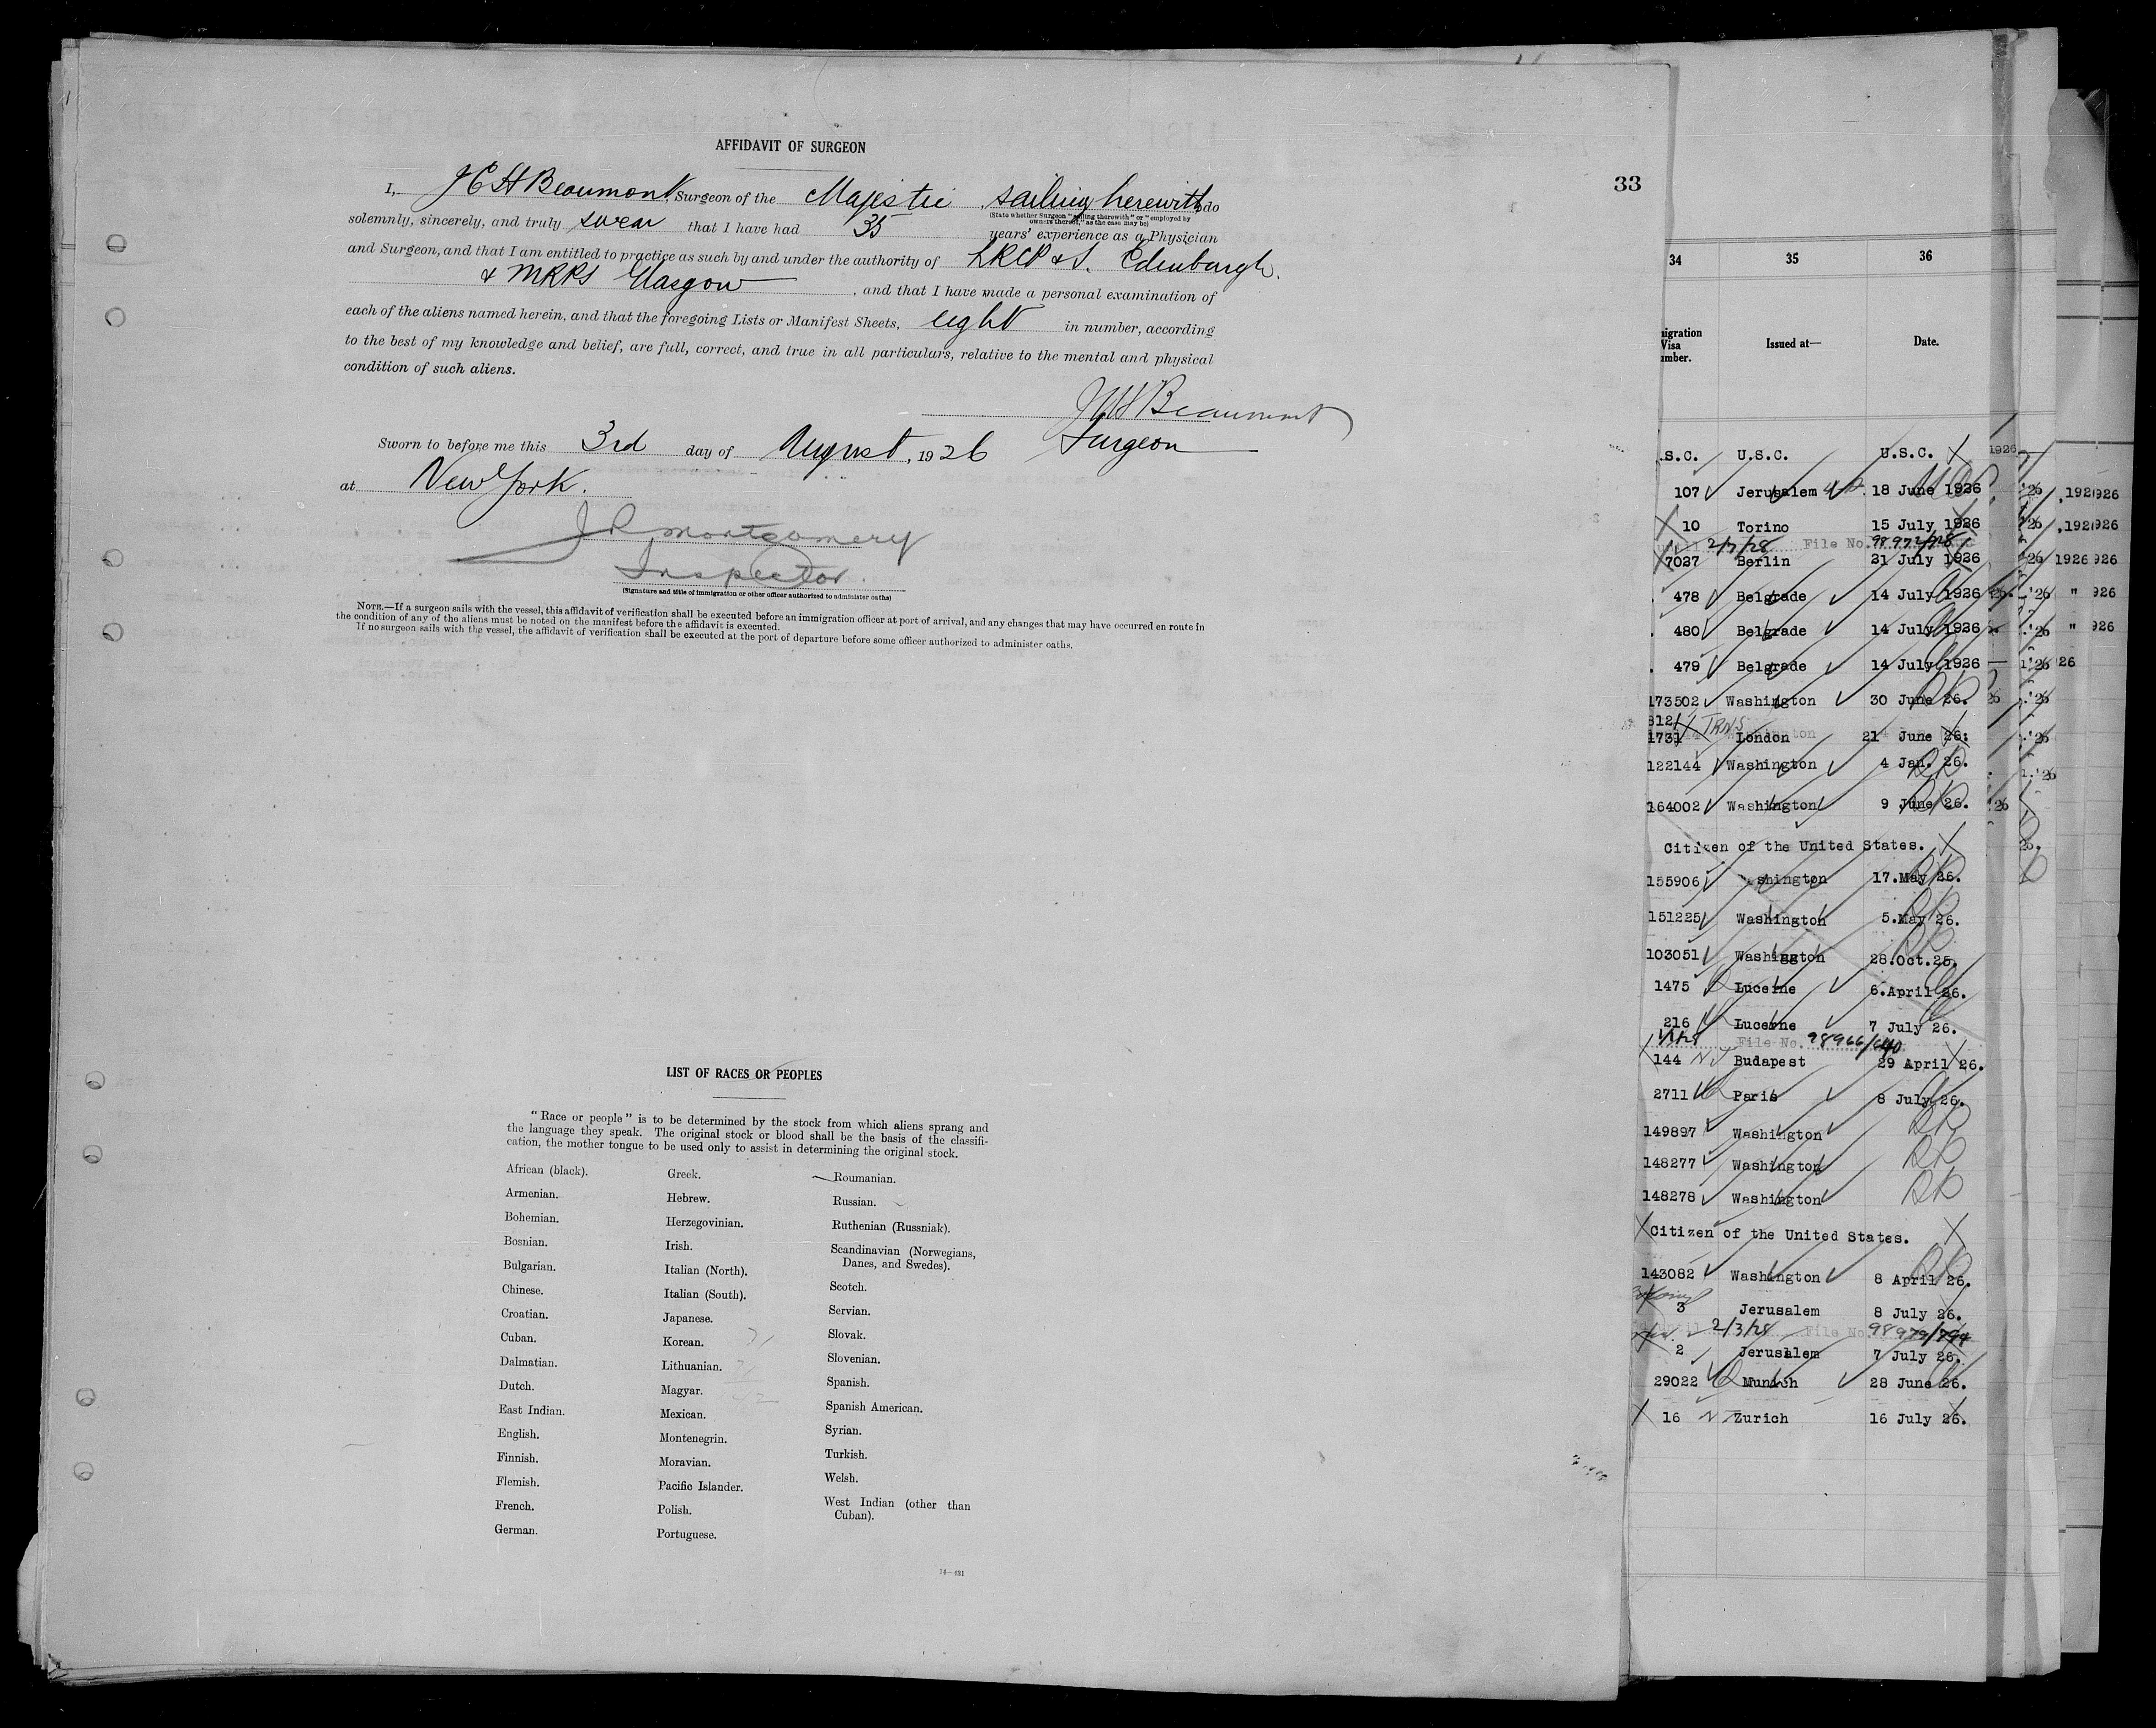 AFFIDAVIT OF SURGEON
33
I, J C H Beaumont, Surgeon of the Majestic, sailing herewith do
(State whether Surgeon "sailing therewith" or "employed by
owners thereof," as the case may be)
solemnly, sincerely, and truly swear that I have had 35 years' experience as a Physician
and Surgeon, and that I am entitled to practice as such by and under the authority of LRCP & S. Edenburgh.
& Glasgow, and that I have made a personal examination of
each of the aliens named herein, and that the foregoing Lists or Manifest Sheets, eight in number, according
to the best of my knowledge and belief, are full, correct, and true in all particulars, relative to the mental and physical
condition of such aliens.
JCH Beaumont
Surgeon
Sworn to before me this 3rd day of August, 1926
at New York.
J R Montgomery
Inspector.
(Signature and title of immigration or other officer authorized to administer oaths)
NOTE.—If a surgeon sails with the vessel, this affidavit of verification shall be executed before an immigration officer at port of arrival, and any changes that may have occurred en route in
the condition of any of the aliens must be noted on the manifest before the affidavit is executed.
If no surgeon sails with the vessel, the affidavit of verification shall be executed at the port of departure before some officer authorized to administer oaths.
LIST OF RACES OR PEOPLES
"Race or people" is to be determined by the stock from which aliens sprang and
the language they speak. The original stock or blood shall be the basis of the classifi-
cation, the mother tongue to be used only to assist in determining the original stock.
African (black).
Armenian.
Bohemian.
Bosnian.
Bulgarian.
Chinese.
Croatian.
Cuban.
Dalmatian.
Dutch.
East Indian.
English.
Finnish.
Flemish.
French.
German.
Greek.
Hebrew.
Herzegovinian.
Irish.
Italian (North).
Italian (South).
Japanese.
Korean.
Lithuanian.
Magyar.
Mexican.
Montenegrin.
Moravian.
Pacific Islander.
Polish.
Portuguese.
Roumanian.
Russian.
Ruthenian (Russniak).
Scandinavian (Norwegians,
Danes, and Swedes).
Scotch.
Servian.
Slovak.
Slovenian.
Spanish.
Spanish American.
Syrian.
Turkish.
Welsh.
West Indian (other than
Cuban).
14—431
34 35 36
migration
Visa
umber.
Issued at—
Date.
.S.C. U.S.C. U.S.C.
107 Jerusalem 18 June 1926
10 Torino 15 July 1926
2/7/28 File No. 98972/728
7027 Berlin 21 July 1926
478 Belgrade 14 July 1926
480 Belgrade 14 July 1926
479 Belgrade 14 July 1926
173502 Washington 30 June 26.
1731 London 21 June 26.
122144 Washington 4 Jan. 26.
164002 Washington 9 June 26.
Citizen of the United States.
155906 Washington 17.May 26.
151225 Washington 5.May 26.
103051 Washington 28.Oct.25.
1475 Lucerne 6.April 26.
216 Lucerne 7 July 26.
File No. 98966/640
144 Budapest 29 April 26.
2711 Paris 8 July 26.
149897 Washington
148277 Washington
148278 Washington
Citizen of the United States.
143082 Washington 8 April 26.
3 Jerusalem 8 July 26.
2/3/28 File No.
2 Jerusalem 7 July 26.
29022 Munich 28 June 26.
16 Zurich 16 July 26.